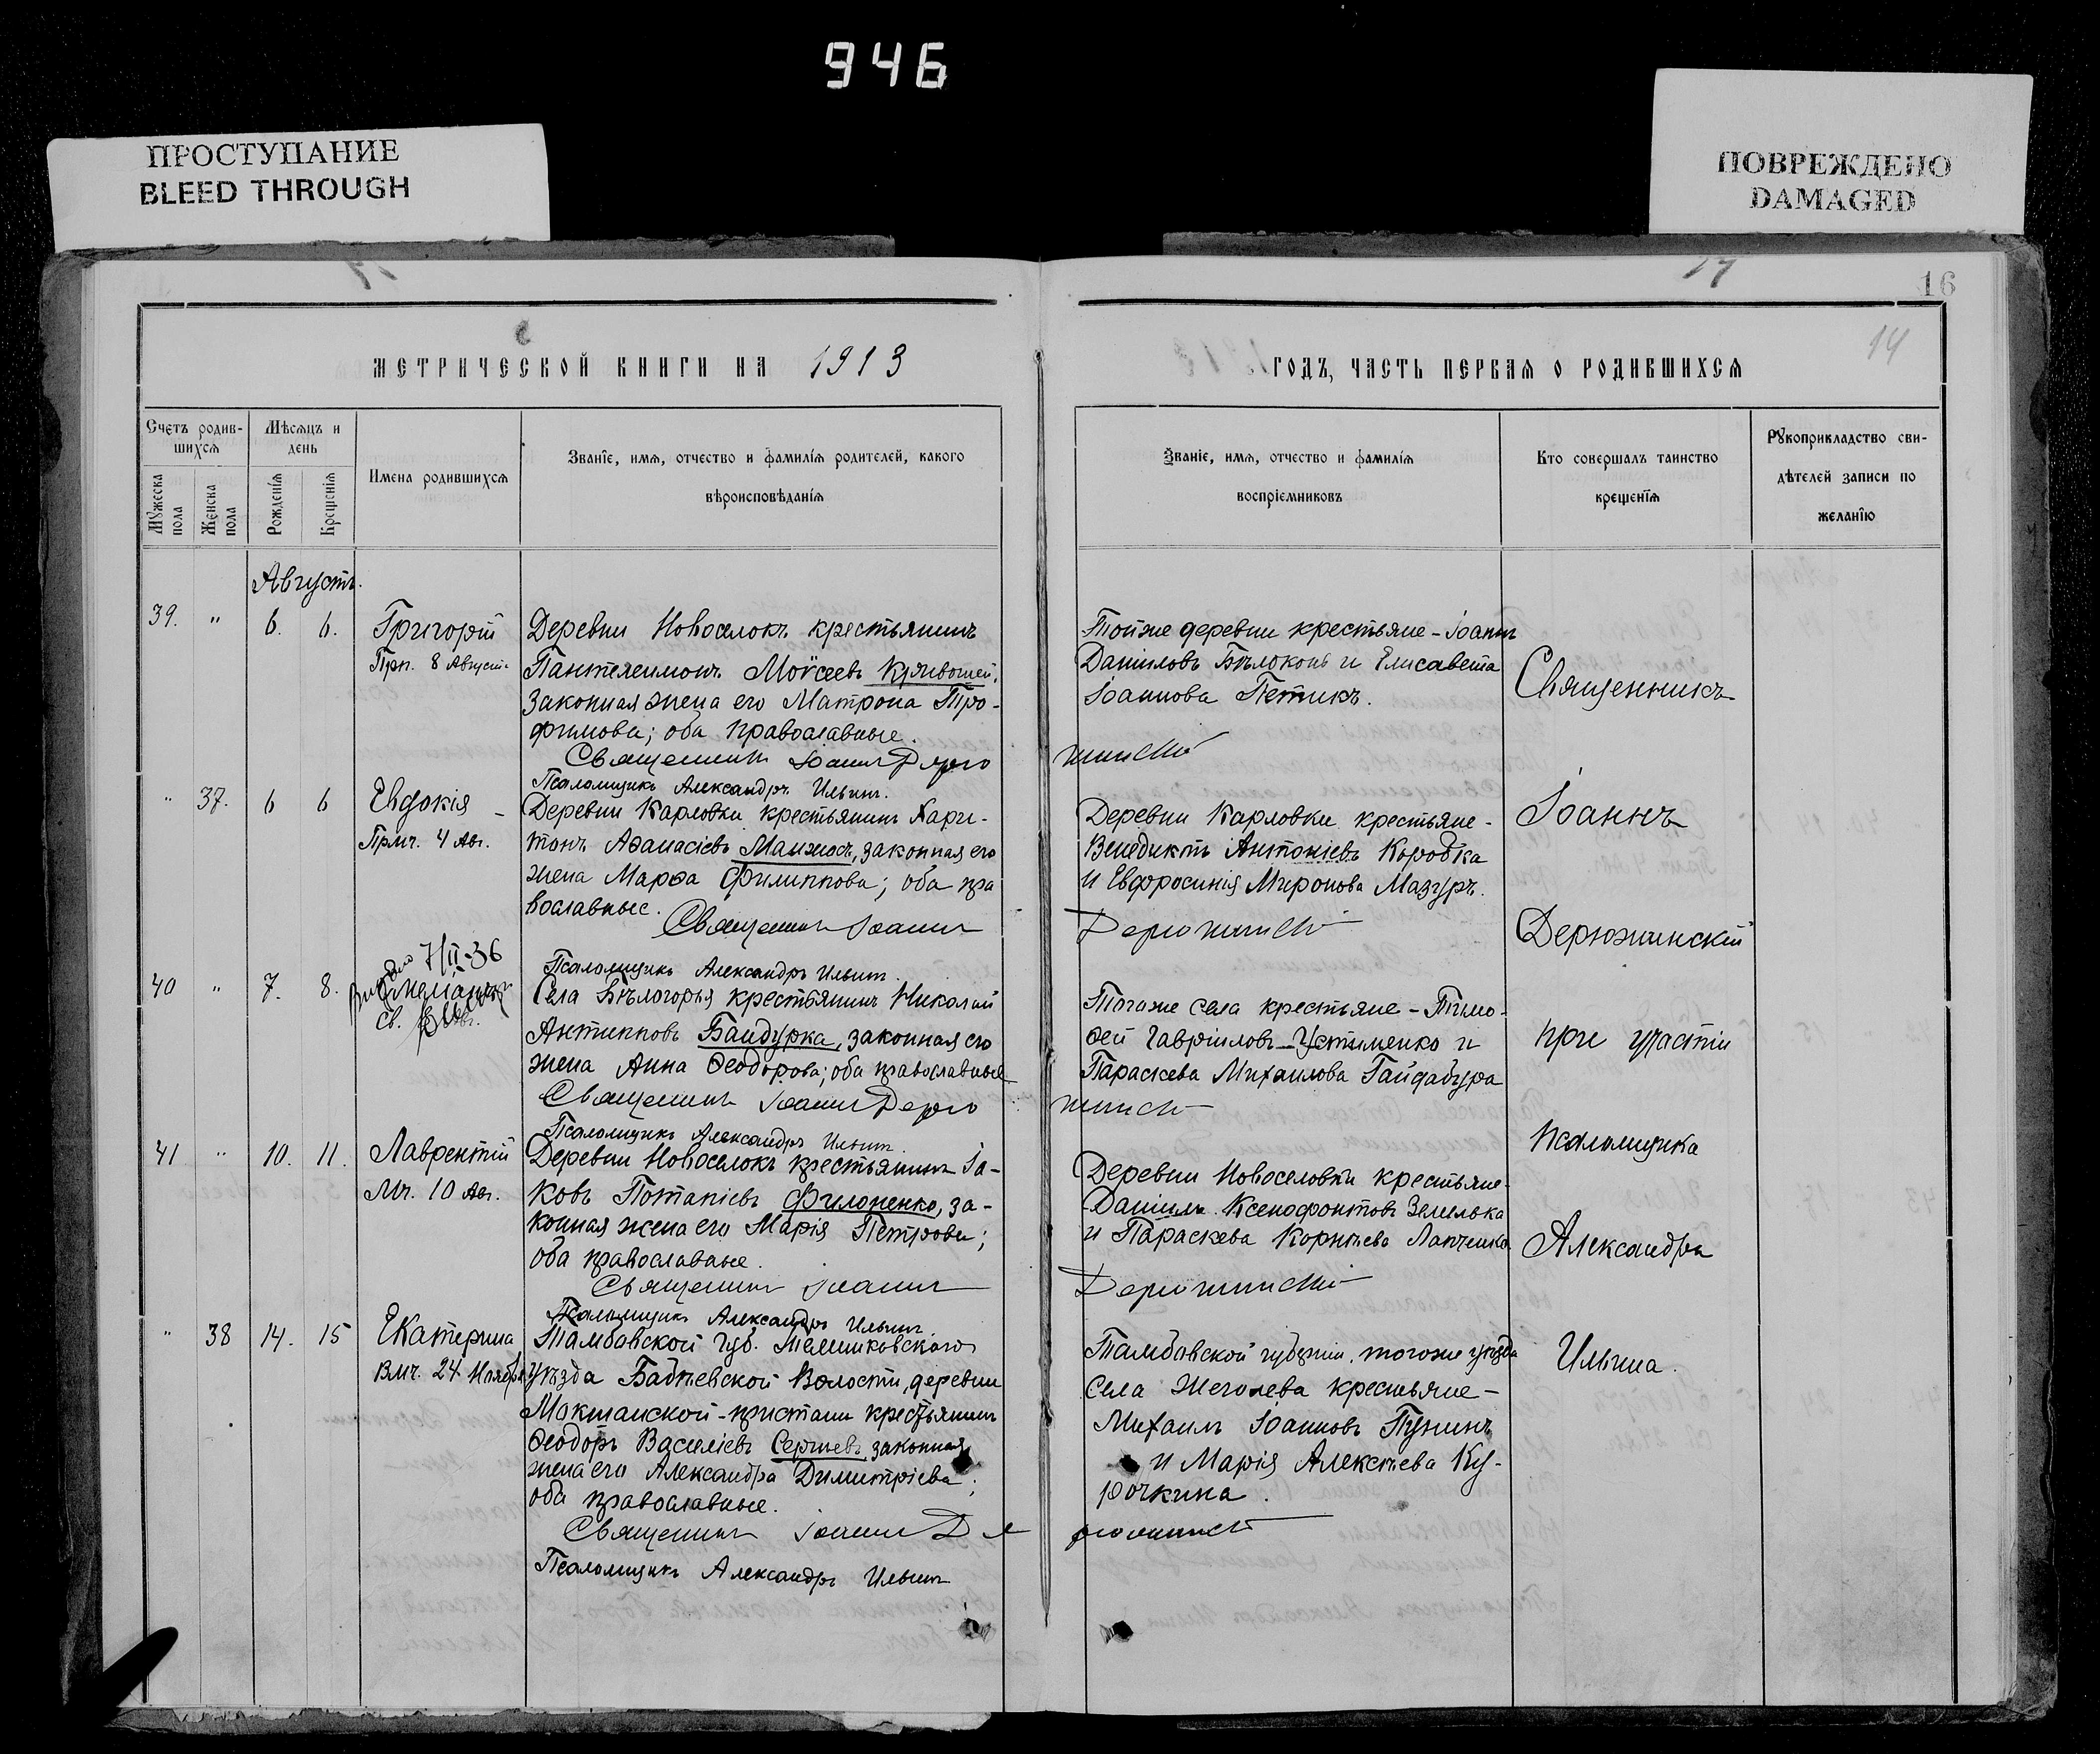 946
ПРОСТУПАНИЕ
BLEED THROUGH
ПОВРЕЖДЕНО
DAMAGED
16
14
МЕТРИЧЕСКОЙ КНИГИ НА 1913
Счетъ родив-
шихся
Мѣсяцъ и
день
Мужеска
пола
Женска
пола
Рожденія
Крещенія
Имена родившихся
Званіе, имя, отчество и фамилія родителей, какого
вѣроисповѣданія
Августъ.
39. " 6. 6. Григорій
Прп. 8 Август.
Деревни Новоселокъ крестьянинъ
Пантелеимонъ Моѵсеевъ Кривошей,
законная жена его Матрона Тро-
фимова; оба православные.
Священникъ Іоаннъ Дерю
Псаломщикъ Александръ Ильинъ.
" 37. 6 6 Евдокія
Прмч. 4 Авг.
Деревни Карловки крестьянинъ Хари-
тонъ Аѳанасіевъ Манжосъ, законная его
жена Марѳа Филиппова; оба пра
вославные.
Священникъ Іоаннъ
Псаломщикъ Александръ Ильинъ.
7/II-36
40 " 7. 8. Емеліанъ
Св. 8 Авг.
Села Бѣлогорья крестьянинъ Николай
Антипповъ Бандурка, законная его
жена Анна Ѳеодорова; оба православные
Священникъ Іоаннъ Дерю
Псаломщикъ Александръ Ильинъ.
41 " 10. 11. Лаврентій
Мч. 10 Авг.
Деревни Новоселокъ крестьянинъ Іа-
ковъ Потапіевъ Филоненко, за-
конная жена его Марія Петрова;
оба православные.
Священникъ Іоаннъ
Псаломщикъ Александръ Ильинъ
" 38 14. 15 Екатерина
Вмч. 24 Ноября
Тамбовской губ. Темниковскаго
уѣзда Бабѣевской волости, деревни
Мокшанской-пристани крестьянинъ
Ѳеодоръ Василіевъ Сергѣевъ, законная
жена его Александра Димитріева;
оба православные.
Священникъ Іоаннъ Де
Псаломщикъ Александръ Ильинъ
ГОДЪ, ЧАСТЬ ПЕРВАЯ О РОДИВШИХСЯ
Званіе, имя, отчество и фамилія
воспріемниковъ
Кто совершалъ таинство
крещенія
Рукоприкладство сви-
дѣтелей записи по
желанію
Тойже деревни крестьяне - Іоаннъ
Даниловъ Бѣлоконь и Елисавета
Іоаннова Петикъ.
жинскій
Деревни Карловки крестьяне -
Венедиктъ Антоніевъ Коробка
и Евфросинія Миронова Мазуръ.
Дерюжинскій
Тогоже села крестьяне - Тимо-
ѳей Гавріиловъ Устименко и
Параскева Михаилова Гайдабура
жинскій
Деревни Новоселовки крестьяне -
Даніилъ Ксенофонтовъ Земелька
и Параскева Корнѣева Лапченко
Дерюжинскій
Тамбовской губерніи, тогоже уѣзда
села Жегалева крестьяне -
Михаилъ Іоанновъ Пунинъ
и Марія Алексѣева Ку-
рочкина.
рюжинскій
Священникъ
Іоаннъ
Дерюжинскій
при участіи
псаломщика
Александра
Ильина.